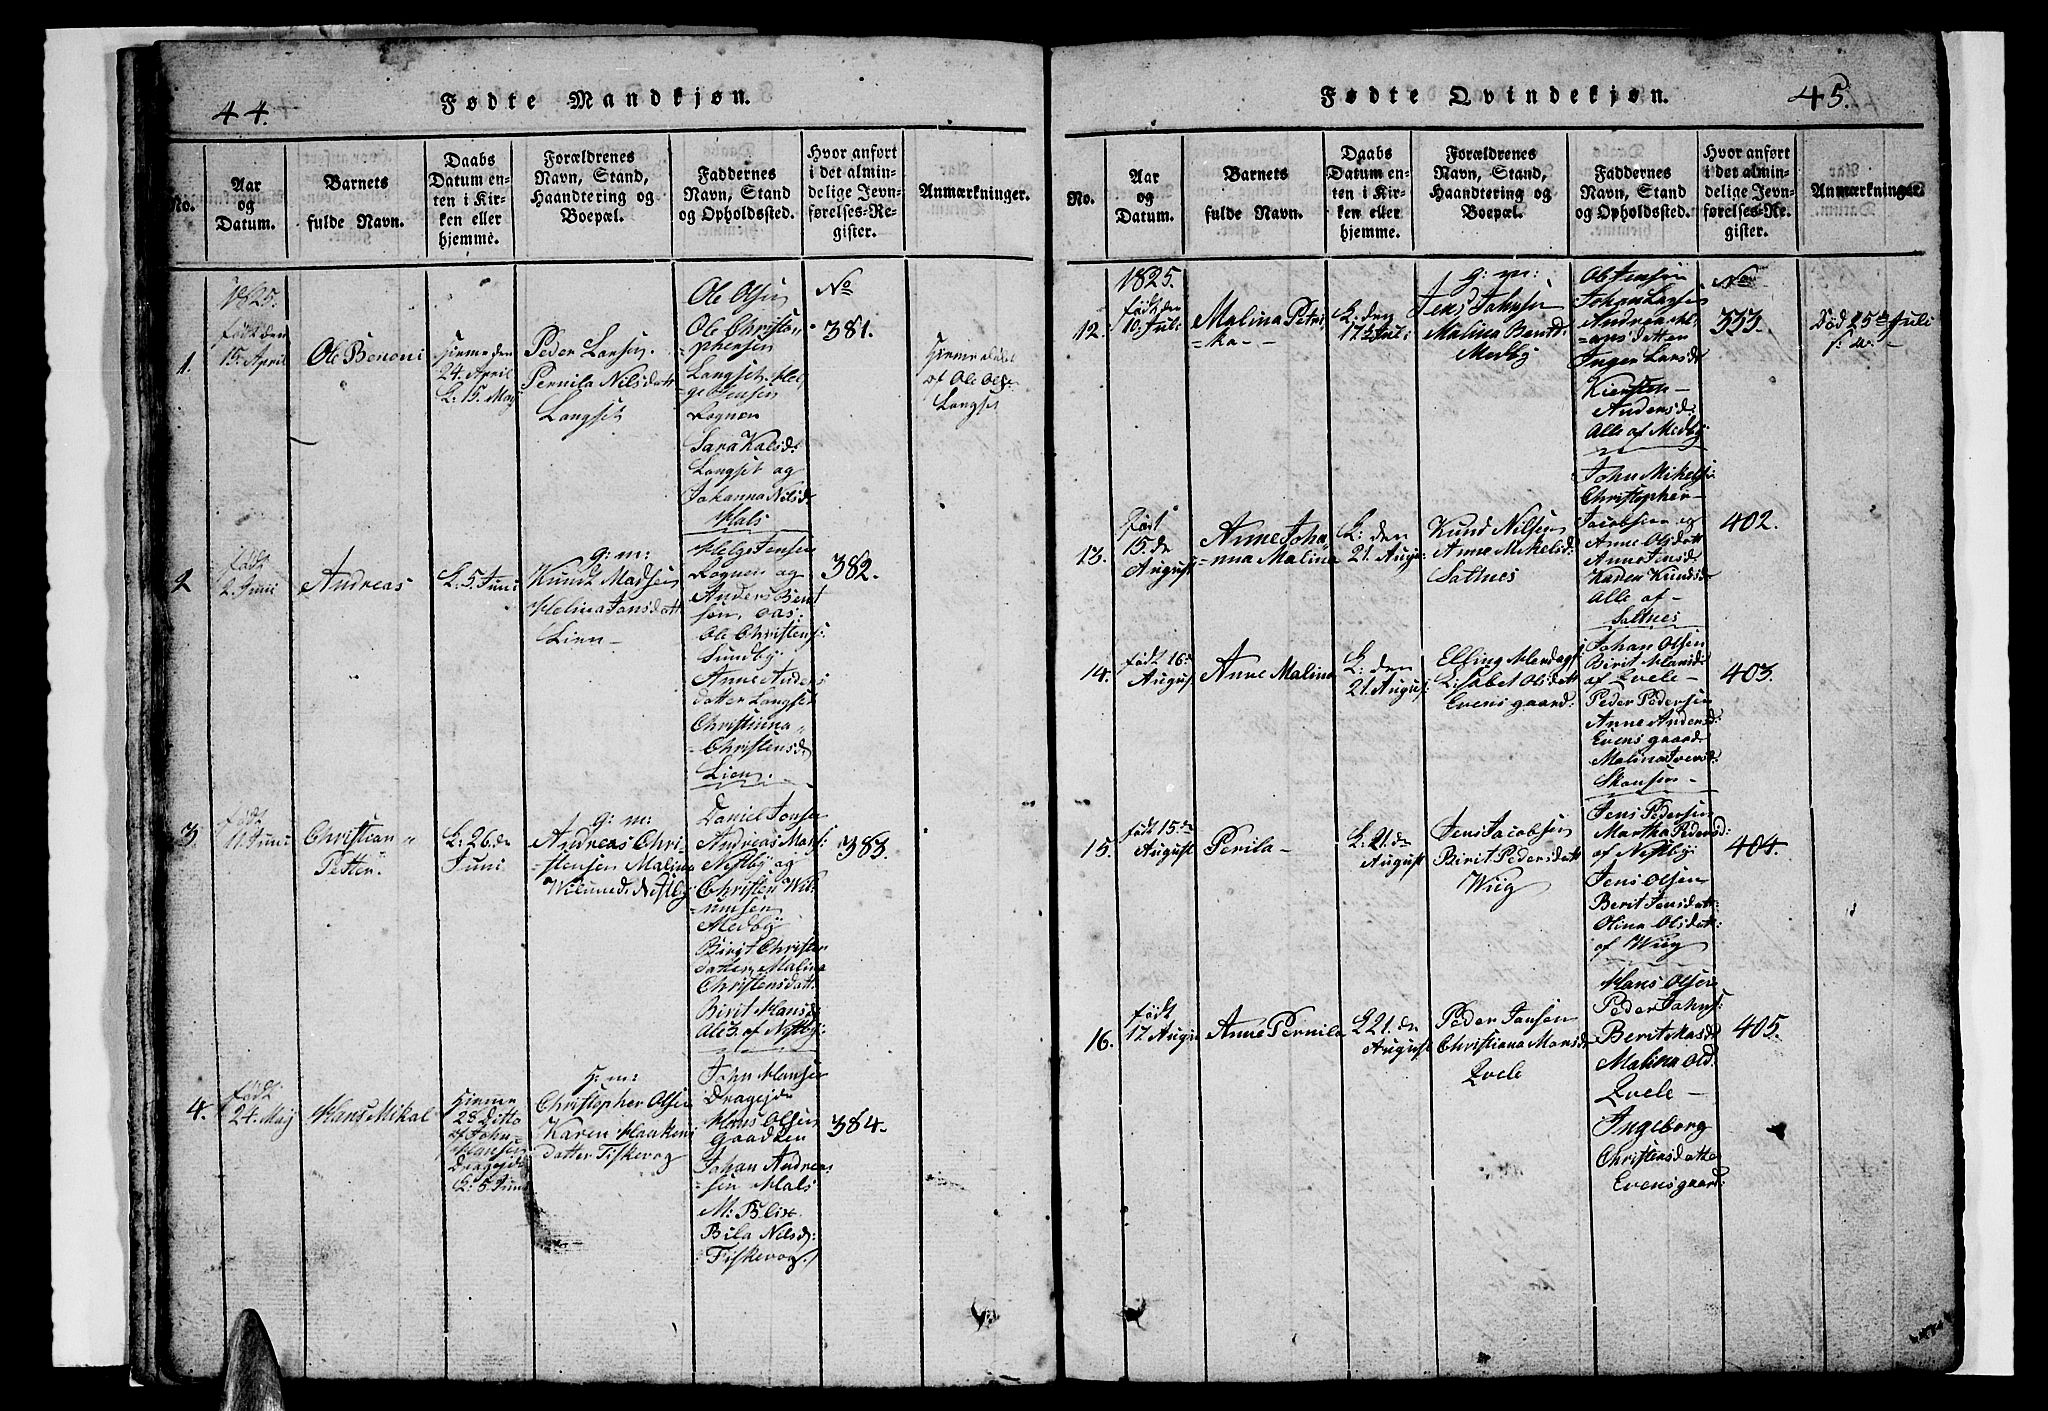 44.
Fødte Mandkjøn.
No.
Aar
og
Datum.
Barnets
fulde Navn.
Daabs
Datum en-
ten i Kir-
ken eller
hjemme.
Forældrenes
Navn, Stand,
Haandtering og
Boepæl.
Faddernes
Navn, Stand
og Opholdssted.
Hvor anført
i det almin-
delige Jevn-
førelses-Re-
gister.
Anmærkninger.
1825.
1.
født den
15. April
Ole Benoni
Hiemme den
24. April
K: 15. Maj
Peder Larsen
Pernila Nilsdatt
Langset
Ole Olsen
Ole Christo
=phersen
Langset.
Rognen
Sara
Langset og
Johanna Nilsd:
Hals
No
381.
Hiemme
af Ole Ols:
Langset
2
født
2. Juni
Andreas
K: 5 Juni
g: m:
Knud Madsen
Helina Jonsdatt
Lien
Helge Jensen
Rognen og
Anders Bent
sen, Aas
Ole Christens:
Sundby
Anne Anders
datter Langset
Christianna
=Christensd
Lien.
382.
3.
født
11. Juni
Christian
Petter
K: 26. de
Juni
g: m:
Andreas Chri
=stensen Malina
Nestby
Daniel Jonsen
Andreas
Nestby og
Christen Wil
=umsen
Medby
Birgit Christen
datter, Malina
Christensdatt
Birit Hansd:
Alle 3. af Nestby
383.
4.
født
24. Maj
Hans Mikal
Hieme
28 ditto
af John
Hansen
Dragejde
K: 5. Juni
g: m:
Christopher Olsen
Karen Haakens
datter Fiskevog
John Hansen
Dragejde
Hans Olsen
Johan Andreas
=sen Hals
Bila Nilsd:
Fiskevog.
384.
45.
Fødte Qvindekjøn.
No.
Aar
og
Datum.
Barnets
fulde Navn.
Daabs
Datum en-
ten i Kir-
ken eller
hjemme.
Forældrenes
Navn, Stand,
Haandtering og
Boepæl.
Faddernes
Navn, Stand
og Opholdssted.
Hvor anført
i det almin-
delige Jevn-
førelses-Re-
gister.
Anmærkninger.
1825.
12.
født den
10. Juli
Malina Petri
=ka
K: den
17 Juli
g: m:
Jens Johnsen
Malina Bentd:
Medby
Ole Jensen
Johan Larsen
Andrea
datter
Inger Larsd:
Kiersten
Andersd:
Alle af Medby
No
353.
Død 25de Juli
13.
født
15. de
August
Anne Joha
=nna Malina
K: den
21. August
Knud Nilsen
Anne Mikelsd:
Saltnes
John Mikelsen
Christopher
Jacobsen og
Anne Olsdatt
Anne Jensd:
Karen Knudsd:
Alle af
Saltnes
402.
14.
født 16.
August
Anne Malina
K: den
21. August
Elling
Lisabet Olsdatt
Evensgaard:
Johan Olsen
Birit Hansd:
af Qvele
Peder Pedersen
Anne Andersd:
Evensgaard
Malina Iversd:
Skansen
403.
15.
født 15. de
August
Perila
K: 21. de
August
Jens Jacobsen
Birit Pedersdatt
Wiig
Jens Pedersen
Martha Pedersd:
af Nestby
Jens Olsen
Berit Jensdatt:
Olina Olsdatt:
af Wiig
404.
16.
født
17 August
Anne Pernila
K 21. de
August
Peder Jansen
Christiana Hansd:
Qvele
Hans Olsen
Peder Johns:
Berit Hansd:
Malina Old:
Qvele
Ingeborg
Christensdatter
Evensgaard:
405.